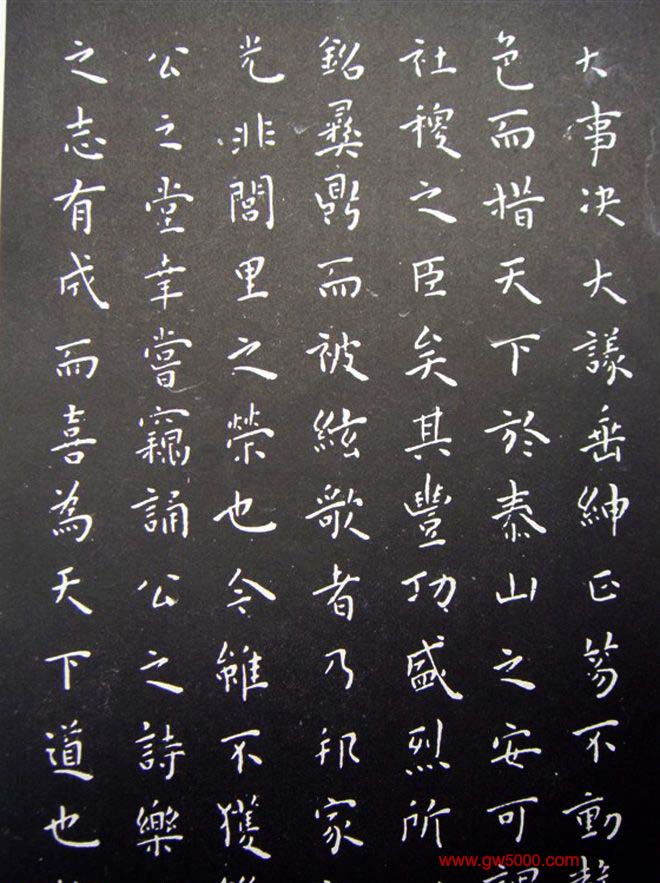 大事决大議垂紳正笏不動
色而措天下於泰山之安可
社稷之臣矣其豐功盛烈所
銘彝鼎而被絃歌者乃邦家
光非閭里之榮也今雖不獲
公之堂幸嘗竊誦公之詩樂
之志有成而喜為天下道也
www.gw5000.com